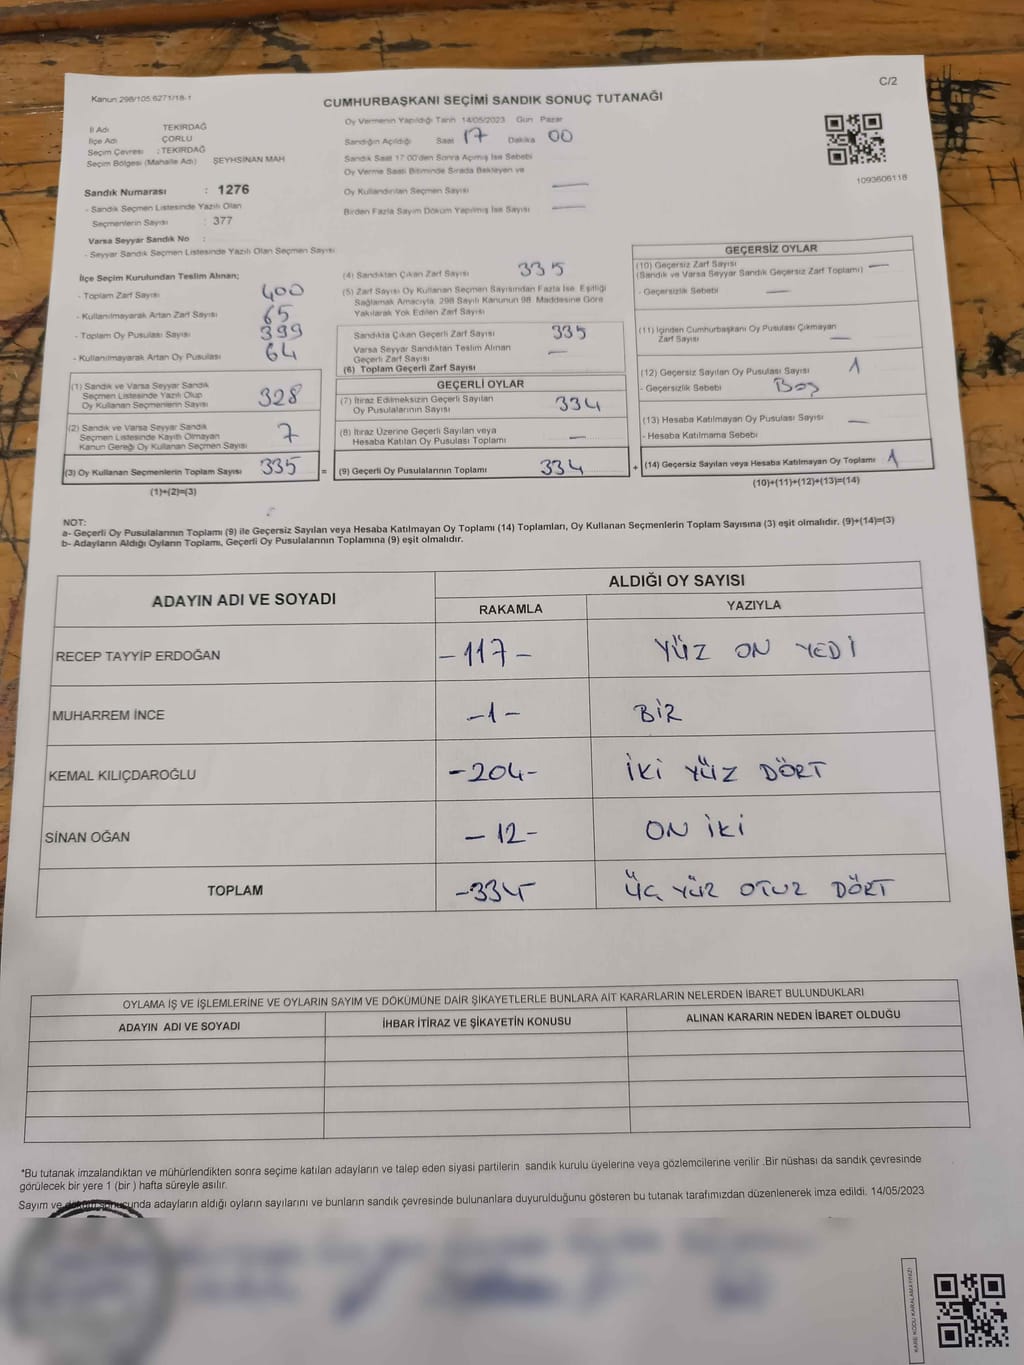 C/2
Kanun 298/105 6271/18-1
CUMHURBAŞKANI SEÇİMİ SANDIK SONUÇ TUTANAĞI
İl Adı TEKİRDAĞ
İlçe Adı ÇORLU
Seçim Çevresi : TEKİRDAĞ
Seçim Bölgesi (Mahalle Adı) ŞEYHSİNAN MAH
Sandık Numarası : 1276
- Sandık Seçmen Listesinde Yazılı Olan
Seçmenlerin Sayısı : 377
Varsa Seyyar Sandık No :
- Seyyar Sandık Seçmen Listesinde Yazılı Olan Seçmen Sayısı
Oy Vermenin Yapıldığı Tarih 14/05/2023 Gün Pazar
Sandığın Açıldığı Saat 17 Dakika 00
Sandık Saat 17:00'den Sonra Açılmış İse Sebebi
Oy Verme Saati Bitiminde Sırada Bekleyen ve
Oy Kullandırılan Seçmen Sayısı —
Birden Fazla Sayım Döküm Yapılmış İse Sayısı —
1093606118
İlçe Seçim Kurulundan Teslim Alınan;
- Toplam Zarf Sayısı 400
- Kullanılmayarak Artan Zarf Sayısı 65
- Toplam Oy Pusulası Sayısı 399
- Kullanılmayarak Artan Oy Pusulası 64
(1) Sandık ve Varsa Seyyar Sandık
Seçmen Listesinde Yazılı Olup
Oy Kullanan Seçmenlerin Sayısı 328
(2) Sandık ve Varsa Seyyar Sandık
Seçmen Listesinde Kayıtlı Olmayan
Kanun Gereği Oy Kullanan Seçmen Sayısı 7
(3) Oy Kullanan Seçmenlerin Toplam Sayısı 335 =
(1)+(2)=(3)
(4) Sandıktan Çıkan Zarf Sayısı 335
(5) Zarf Sayısı Oy Kullanan Seçmen Sayısından Fazla İse, Eşitliği
Sağlamak Amacıyla, 298 Sayılı Kanunun 98. Maddesine Göre
Yakılarak Yok Edilen Zarf Sayısı
Sandıkta Çıkan Geçerli Zarf Sayısı 335
Varsa Seyyar Sandıktan Teslim Alınan
Geçerli Zarf Sayısı —
(6) Toplam Geçerli Zarf Sayısı
GEÇERLİ OYLAR
(7) İtiraz Edilmeksizin Geçerli Sayılan
Oy Pusulalarının Sayısı 334
(8) İtiraz Üzerine Geçerli Sayılan veya
Hesaba Katılan Oy Pusulası Toplamı —
(9) Geçerli Oy Pusulalarının Toplamı 334 +
GEÇERSİZ OYLAR
(10) Geçersiz Zarf Sayısı
(Sandık ve Varsa Seyyar Sandık Geçersiz Zarf Toplamı) —
- Geçersizlik Sebebi —
(11) İçinden Cumhurbaşkanı Oy Pusulası Çıkmayan
Zarf Sayısı —
(12) Geçersiz Sayılan Oy Pusulası Sayısı 1
- Geçersizlik Sebebi Boş
(13) Hesaba Katılmayan Oy Pusulası Sayısı —
- Hesaba Katılmama Sebebi
(14) Geçersiz Sayılan veya Hesaba Katılmayan Oy Toplamı 1
(10)+(11)+(12)+(13)=(14)
NOT:
a- Geçerli Oy Pusulalarının Toplamı (9) ile Geçersiz Sayılan veya Hesaba Katılmayan Oy Toplamı (14) Toplamları, Oy Kullanan Seçmenlerin Toplam Sayısına (3) eşit olmalıdır. (9)+(14)=(3)
b- Adayların Aldığı Oyların Toplamı, Geçerli Oy Pusulalarının Toplamına (9) eşit olmalıdır.
ADAYIN ADI VE SOYADI ALDIĞI OY SAYISI
RAKAMLA YAZIYLA
RECEP TAYYİP ERDOĞAN -117- YÜZ ON YEDİ
MUHARREM İNCE -1- BİR
KEMAL KILIÇDAROĞLU -204- İKİ YÜZ DÖRT
SİNAN OĞAN -12- ON İKİ
TOPLAM -334- ÜÇ YÜZ OTUZ DÖRT
OYLAMA İŞ VE İŞLEMLERİNE VE OYLARIN SAYIM VE DÖKÜMÜNE DAİR ŞİKAYETLERLE BUNLARA AİT KARARLARIN NELERDEN İBARET BULUNDUKLARI
ADAYIN ADI VE SOYADI İHBAR İTİRAZ VE ŞİKAYETİN KONUSU ALINAN KARARIN NEDEN İBARET OLDUĞU
*Bu tutanak imzalandıktan ve mühürlendikten sonra seçime katılan adayların ve talep eden siyasi partilerin sandık kurulu üyelerine veya gözlemcilerine verilir .Bir nüshası da sandık çevresinde
görülecek bir yere 1 (bir ) hafta süreyle asılır.
Sayım ve döküm sonucunda adayların aldığı oyların sayılarını ve bunların sandık çevresinde bulunanlara duyurulduğunu gösteren bu tutanak tarafımızdan düzenlenerek imza edildi. 14/05/2023
KARE KODU KARALAMAYINIZ!